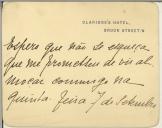 CLARIDGE'S HOTEL,
BROOK STREET. W
Espero que não se esqueça
que me prometteu de vir al
moçar commigo na
quinta feira 7 de Setembro